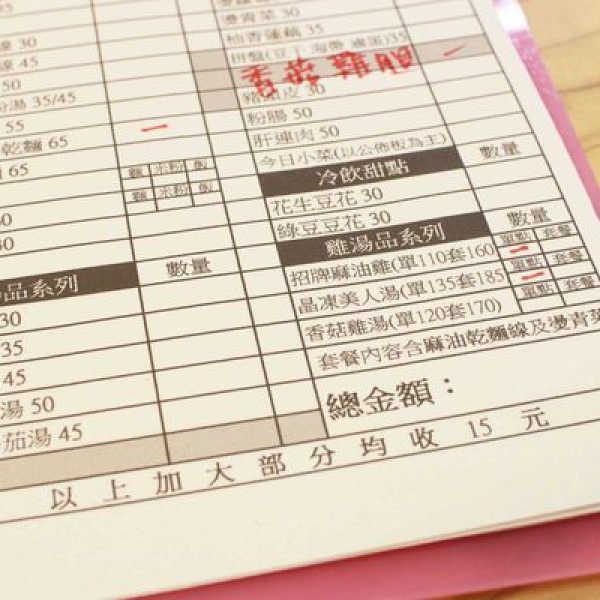 30
45
50
湯 35/45
55
乾麵 65
65
麵 米粉 飯
麵 米粉 飯
30
品系列 數量
30
35
45
湯 50
茄湯 45
燙青菜 30
柚香蓮藕 35
拼盤(豆干 海帶 滷蛋)35
香菇雞胆 一
豬頭皮 30
粉腸 50
肝連肉 50
今日小菜(以公佈板為主)
冷飲甜點 數量
花生豆花 30
綠豆豆花 30
雞湯品系列 數量
招牌麻油雞(單110套160) 單點 套餐
晶凍美人湯(單135套185) 單點 套餐
香菇雞湯(單120套170) 單點 套餐
套餐內容含麻油乾麵線及燙青菜
總金額：
以上加大部分均收 15 元